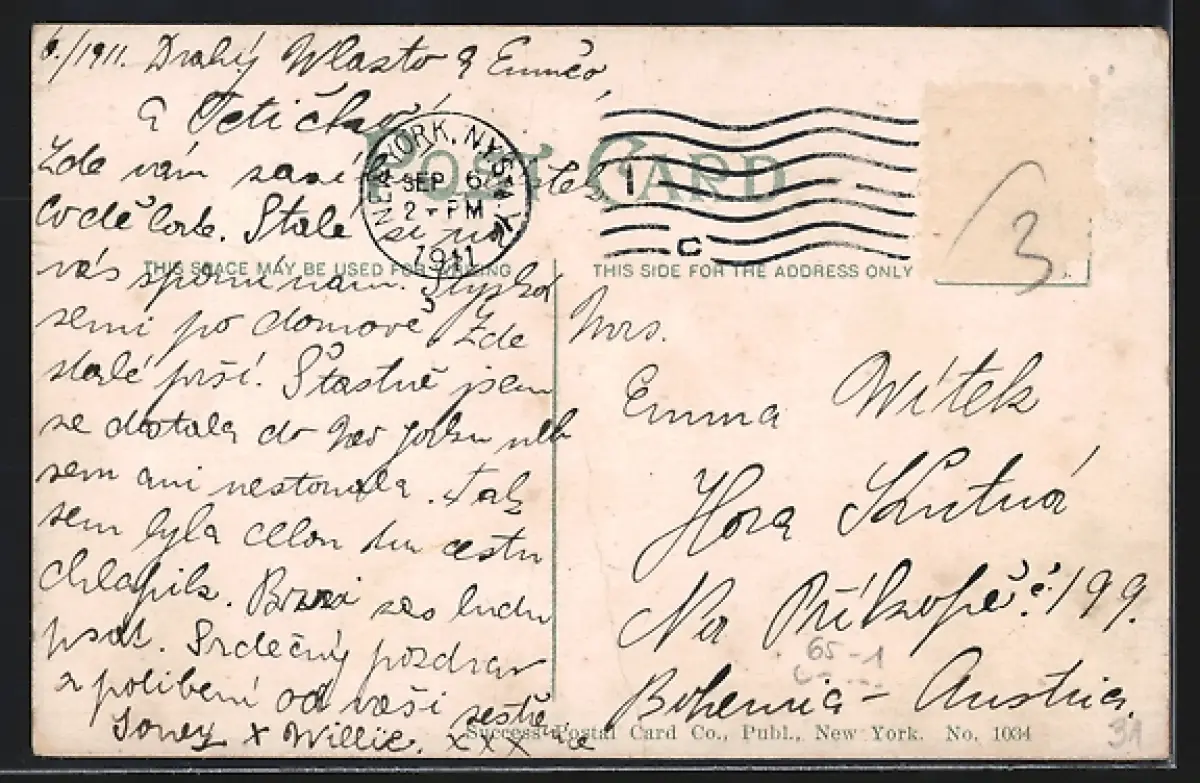 6./1911. Drahý Wlasto a Emičo,
a Tetičko
Zde vám
Stalé si na
vás spomínám. Stýská
semi po domově Zde
stalé prší. Štastně jsem
se dostala do New Yorku neb
sem ani nestonala. Tak
sem byla celou tu cestu
chlapik. Brzi zas budu
psat. Srdečný pozdrav
a polibení od vaší sestřenice
x Willie. xxx
POST CARD
NEW YORK, N.Y.
SEP 6
2 - PM
1911
1
C
THIS SPACE MAY BE USED FOR WRITING
THIS SIDE FOR THE ADDRESS ONLY
3
Mrs.
Emma Wítek
Hora Kutná
Na Příkopě č. 199.
65-1
Bohemia - Austria.
31
Success Postal Card Co., Publ., New York. No. 1034